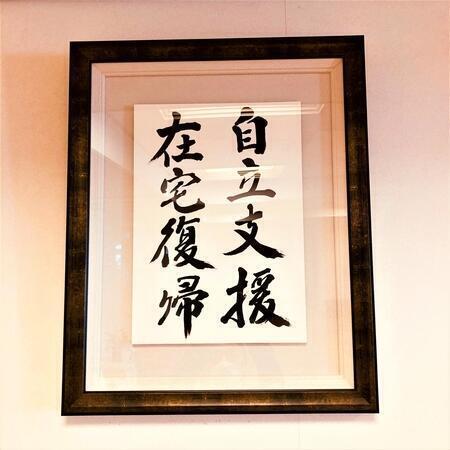 自立支援
在宅復帰